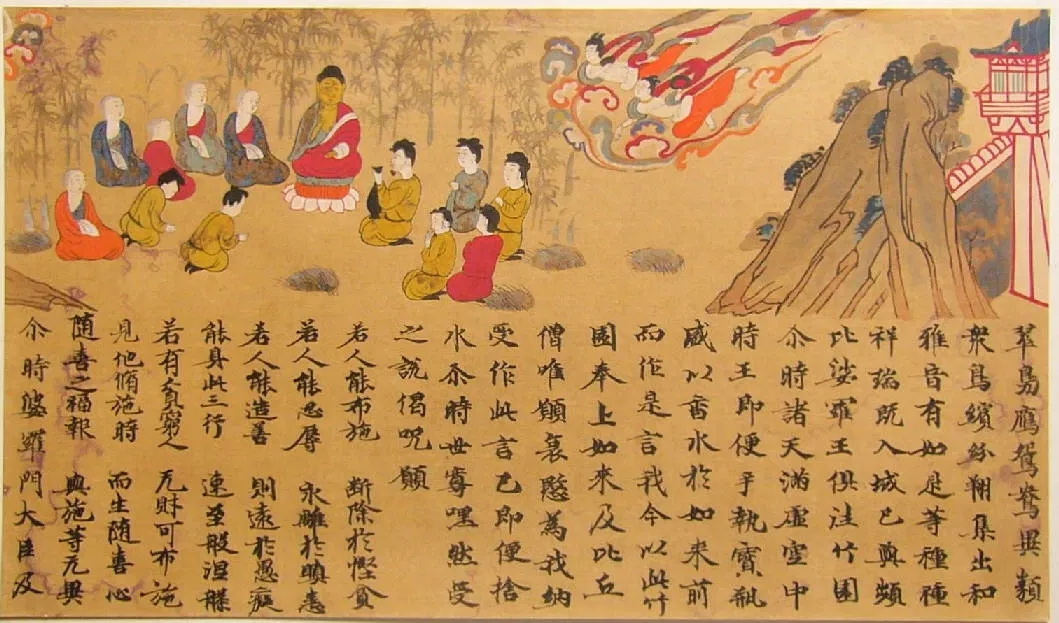 翠鳧鴈鴛鴦異類
衆鳥繽紛翔集出和
雅音有如是等種種
祥瑞既入城已與頻
比娑羅王俱往竹園
尒時諸天滿虛空中
時王即便手執寶瓶
盛以香水於如來前
而作是言我今以此竹
園奉上如來及比丘
僧唯願哀愍為我納
受作此言已即便捨
水尒時世尊嘿然受
之說偈呪願
若人能布施 斷除於慳貪
若人能忍辱 永離於瞋恚
若人能造善 則遠於愚癡
能具此三行 速至般涅槃
若有貧窮人 无財可布施
見他脩施時 而生随喜心
随喜之福報 與施等无異
尒時婆羅門大臣及